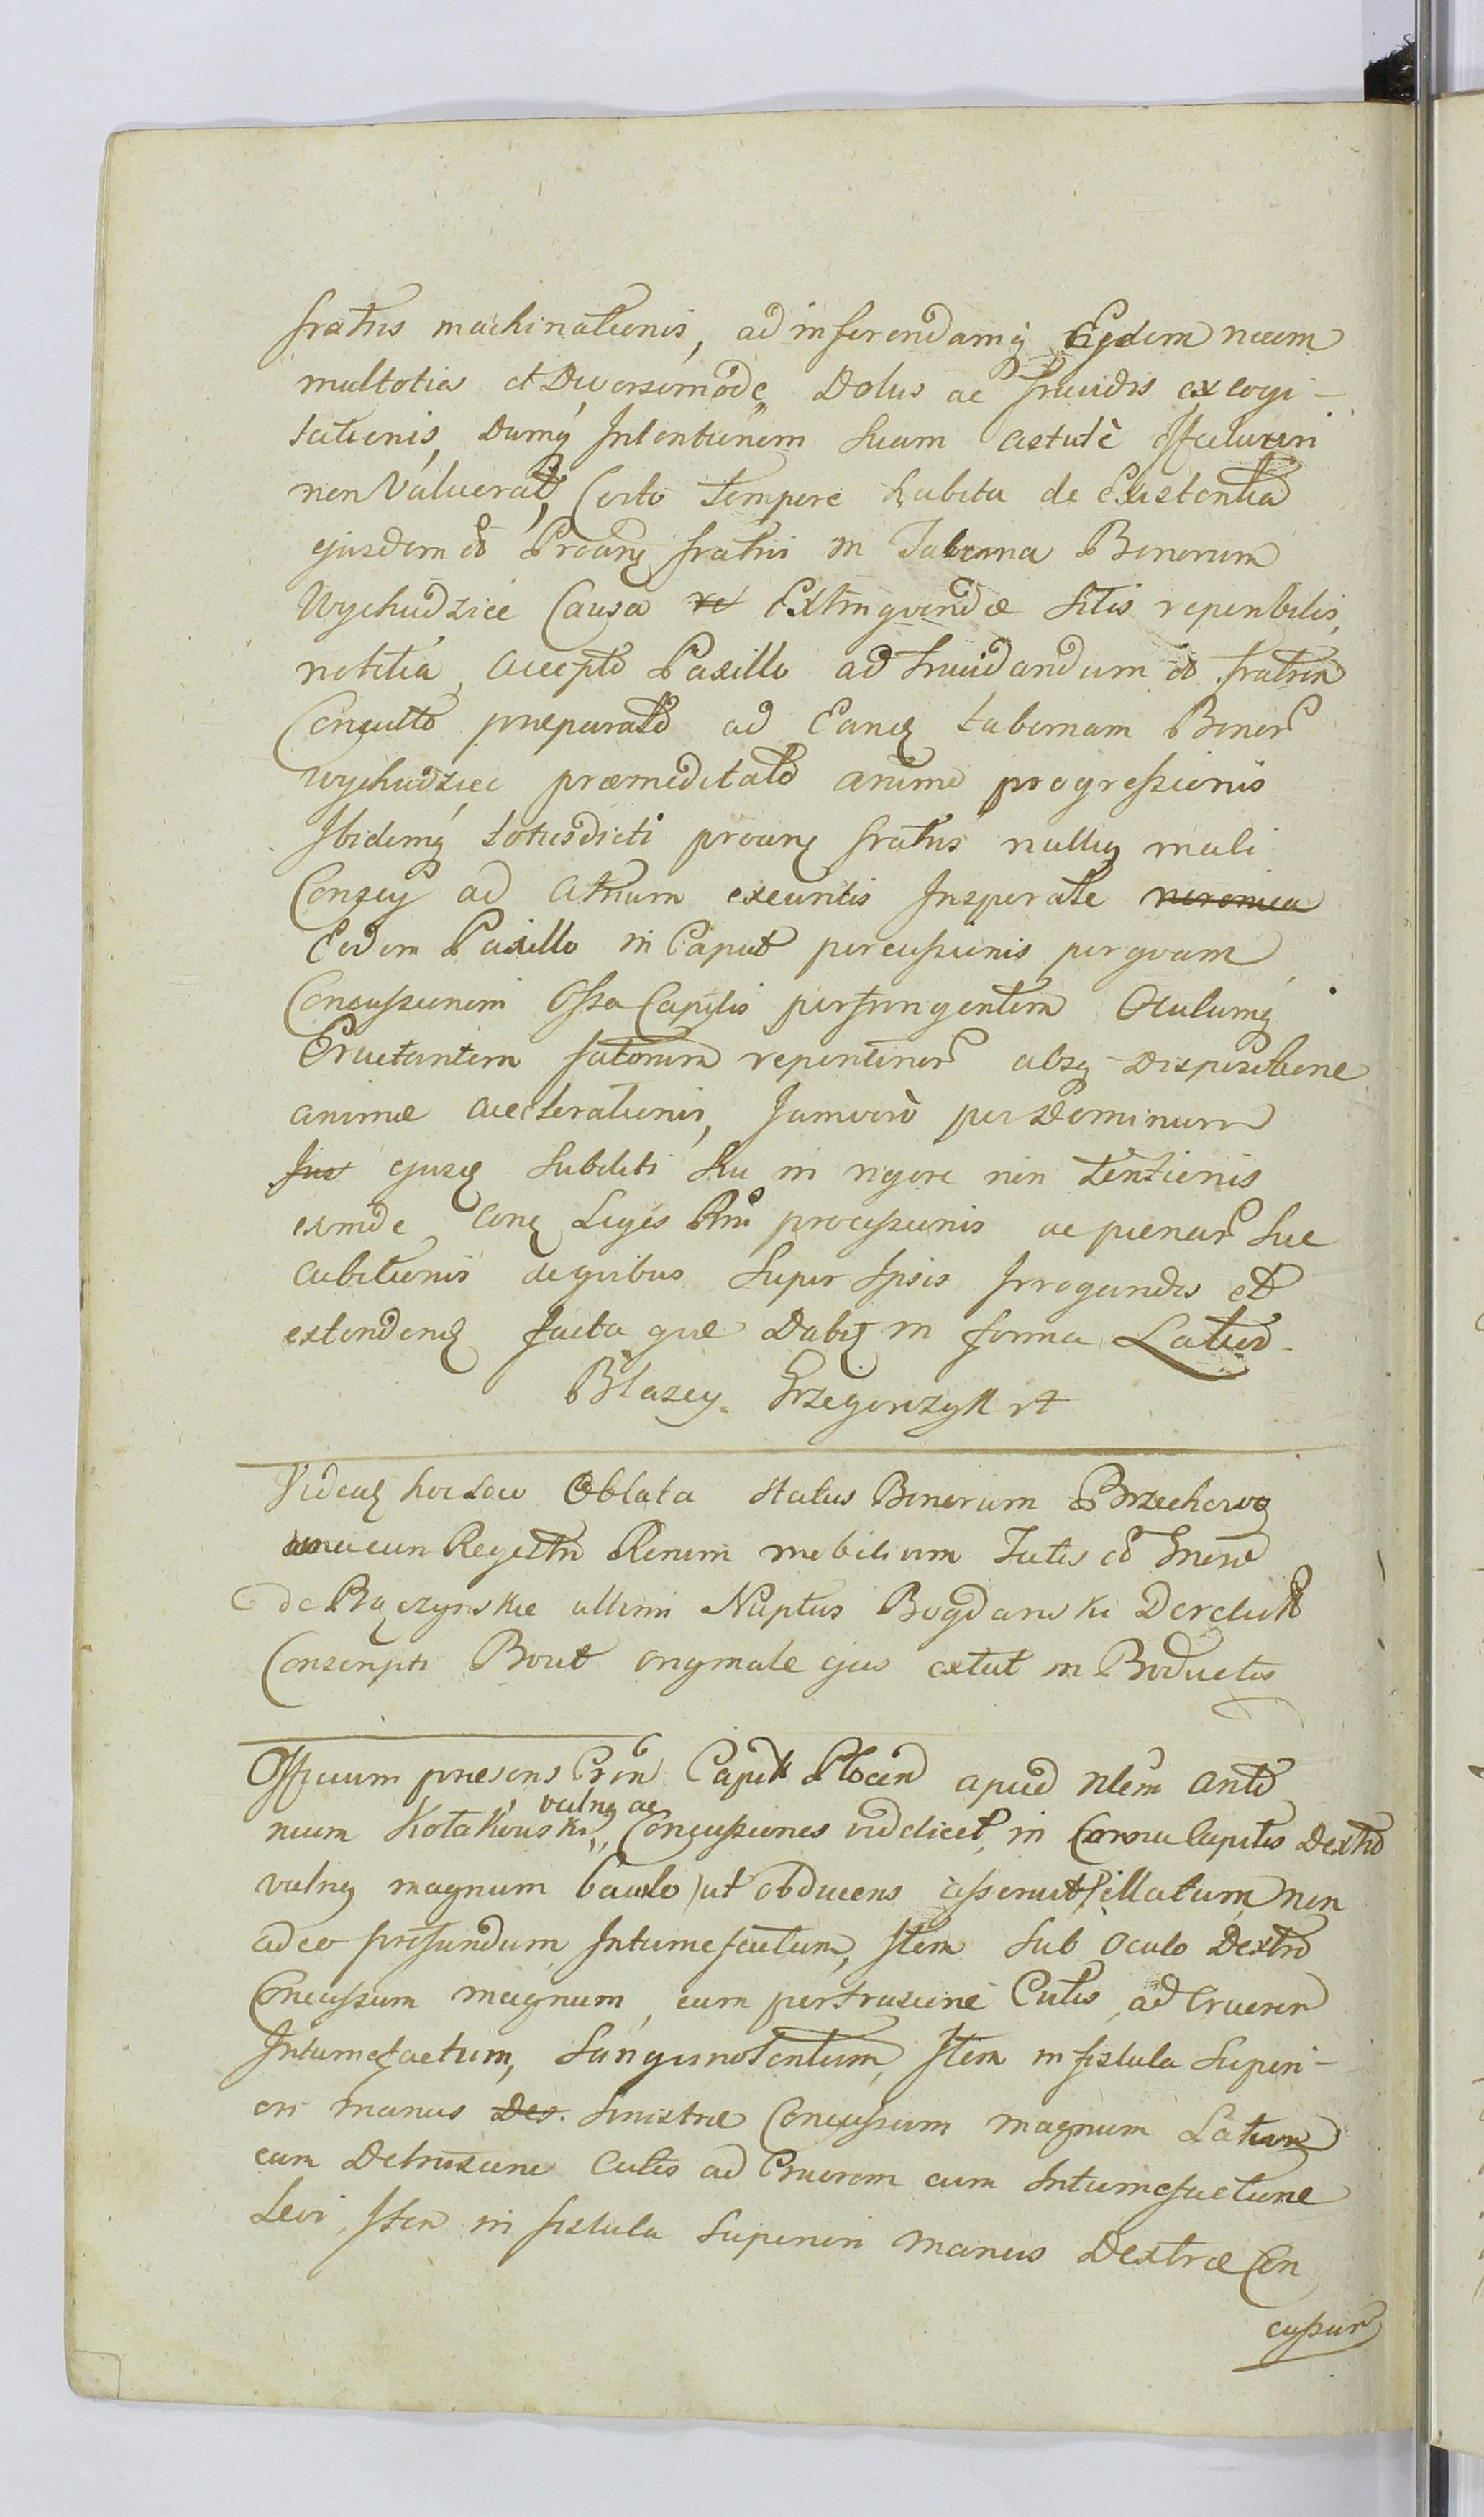 fratris machinationis, ad inferendamq Ejdem necem
multoties et Diversimodè Dolus ac fraudis excogi-
tationis, Dumq Intentionem Suam astutè effectuari
non Valuerat, Certo tempore habita de Existentia
ejusdem Proanq fratris in Taberna Bonorum
Wychudzice Causa Extingvendæ Sitis repentilis,
notitia, accepto Paxillo ad trucidandum fratrem
Consulto præparato ad Eandq tabernam Bonor
Wychudzice præmeditato animo progressionis
Ibidemq totiesdicti proanq fratris nullius mali
Conscy ad Atrium exeuntis Insperate veronica
Eodem Paxillo in Caput percussionis per qvam
Concussionem Ossa Capitis perfringentem Oculumq
Eructantem fatorum repentinor absq Dispositione
animæ accelerationis, Jamverò per Dominum
Jus ejusq Subditi Sui in rigore non tentionis
exinde Conq Leges Rni processionis ac pœnar Suc
cubitionis de qvibus Super Ipsis Irrogandis et
extendenq facta qvæ Dabit in forma Latior
Błazey Grzegorzyk
Videaq hoc Loco Oblata Status Bonorum Brzechowo
unacum Registro Rerum mobilium Fatis Gnere
de Rączynskie ultimi Nuptus Bogdanski Derelict
Conscripti Prout originale ejus extat in Productis
Officium præsens Cren Capit Plocen apud Nlem Anto
nium Kołakowski vulnq ac Concussiones vidclicet, in Cornu Capitis Dextro
vulnq magnum baculo /ut obducens asseruit/ illatum, non
adeo profundum Intumefactum, Item Sub Oculo Dextro
Concussum magnum, cum pertrusione Cutis, ad Cruorem
Intumefactum, Sangvinolentum, Item in fistula Superi-
ori manus Dex. Sinistræ Concussum magnum Latum
cum Detrusione Cutis ad Cruorem cum Intumefactione
Levi, Item in fistula Superiori manus Dextræ Con
cussum